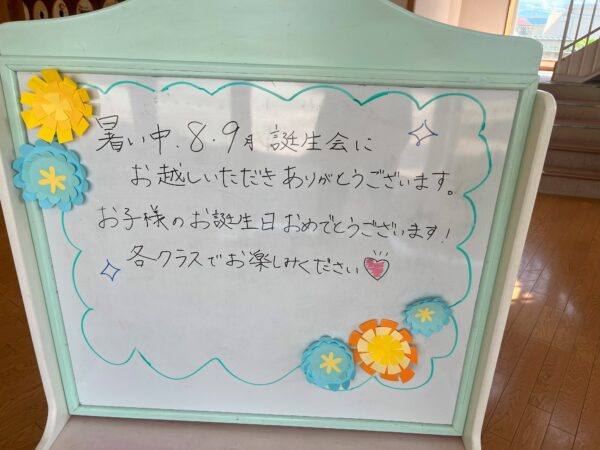 暑い中、8・9月誕生会に
お越しいただきありがとうございます。
お子様のお誕生日おめでとうございます!
各クラスでお楽しみください